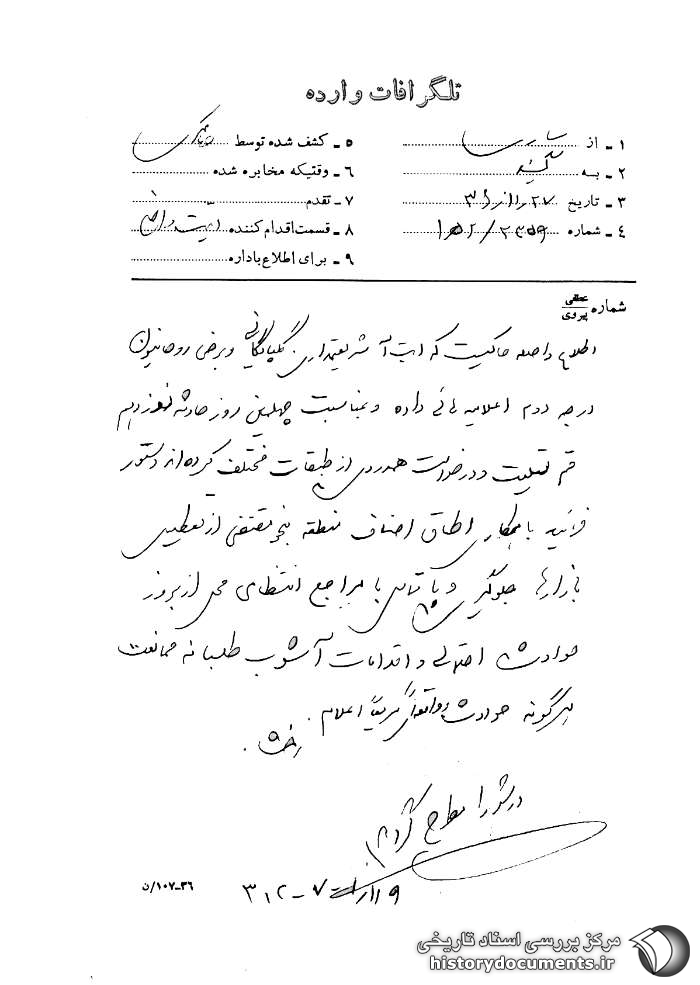 تلگرافات وارده
۱ ـ از
۲ ـ به
۳ ـ تاریخ
۴ ـ شماره ۲۳۵۹ / ۱۵۲
۵ ـ کشف شده توسط
۶ ـ وقتیکه مخابره شده
۷ ـ تقدم
۸ ـ قسمت اقدام کننده
۹ ـ برای اطلاع باداره
شماره عطفی پیروی
اطلاع واصله حاکیست که آیت‌آ.. شریعتمداری، گلپایگانی و برخی روحانیون
درجه دوم اعلامیه هائی داده و بمناسبت چهلمین روز حادثه نوزدهم
قم تسلیت و درخواست همدردی از طبقات مختلف کرده‌اند دستور
فرمائید با همکاری اطاق اصناف منطقه بنحو مقتضی از تعطیلی
بازارها جلوگیری و با تماس با مراجع انتظامی محل از بروز
حوادث اخلالی و اقدامات آشوب طلبانه ممانعت
هرگونه حوادث و وقایع سریعاً اعلام.
در شورا مطرح گردد
۳۱۲ - ۷
۳۶-۱۰۷/ن
مرکز بررسی اسناد تاریخی
historydocuments.ir